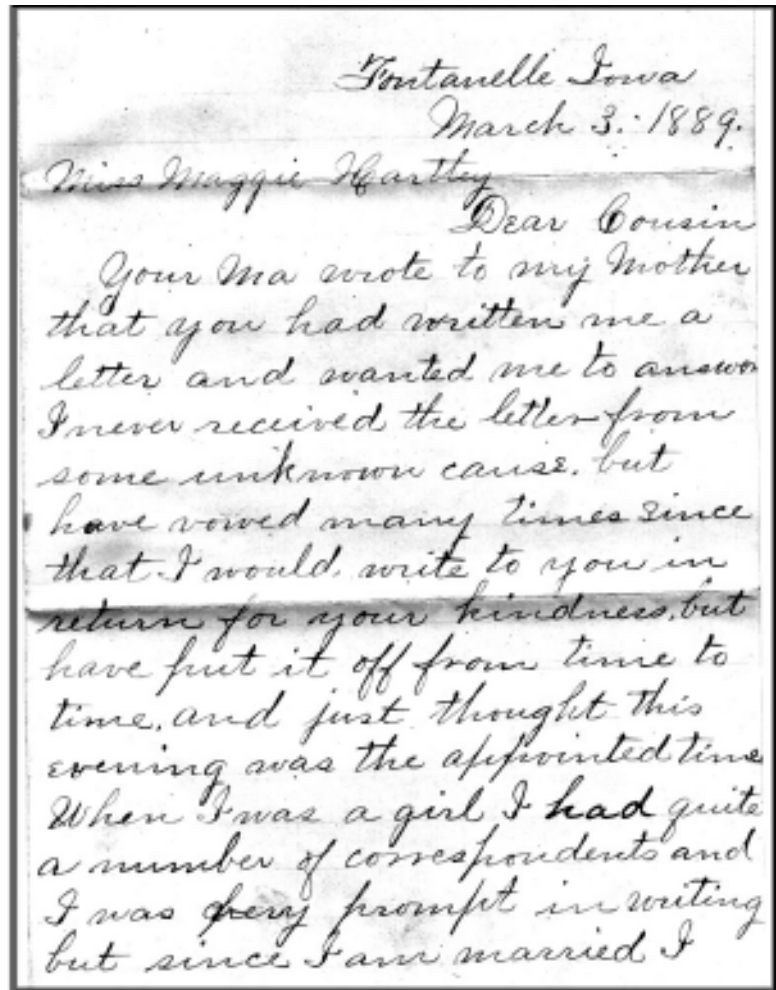 Fontanelle Iowa
March 3. 1889.
Miss Maggie Hartley
Dear Cousin
Your Ma wrote to my Mother
that you had written me a
letter and wanted me to answer
I never received the letter from
some unknown cause. but
have vowed many times since
that I would write to you in
return for your kindness. but
have put it off from time to
time. and just thought this
evening was the appointed time
When I was a girl I had quite
a number of correspondents and
I was very prompt in writing
but since I am married I